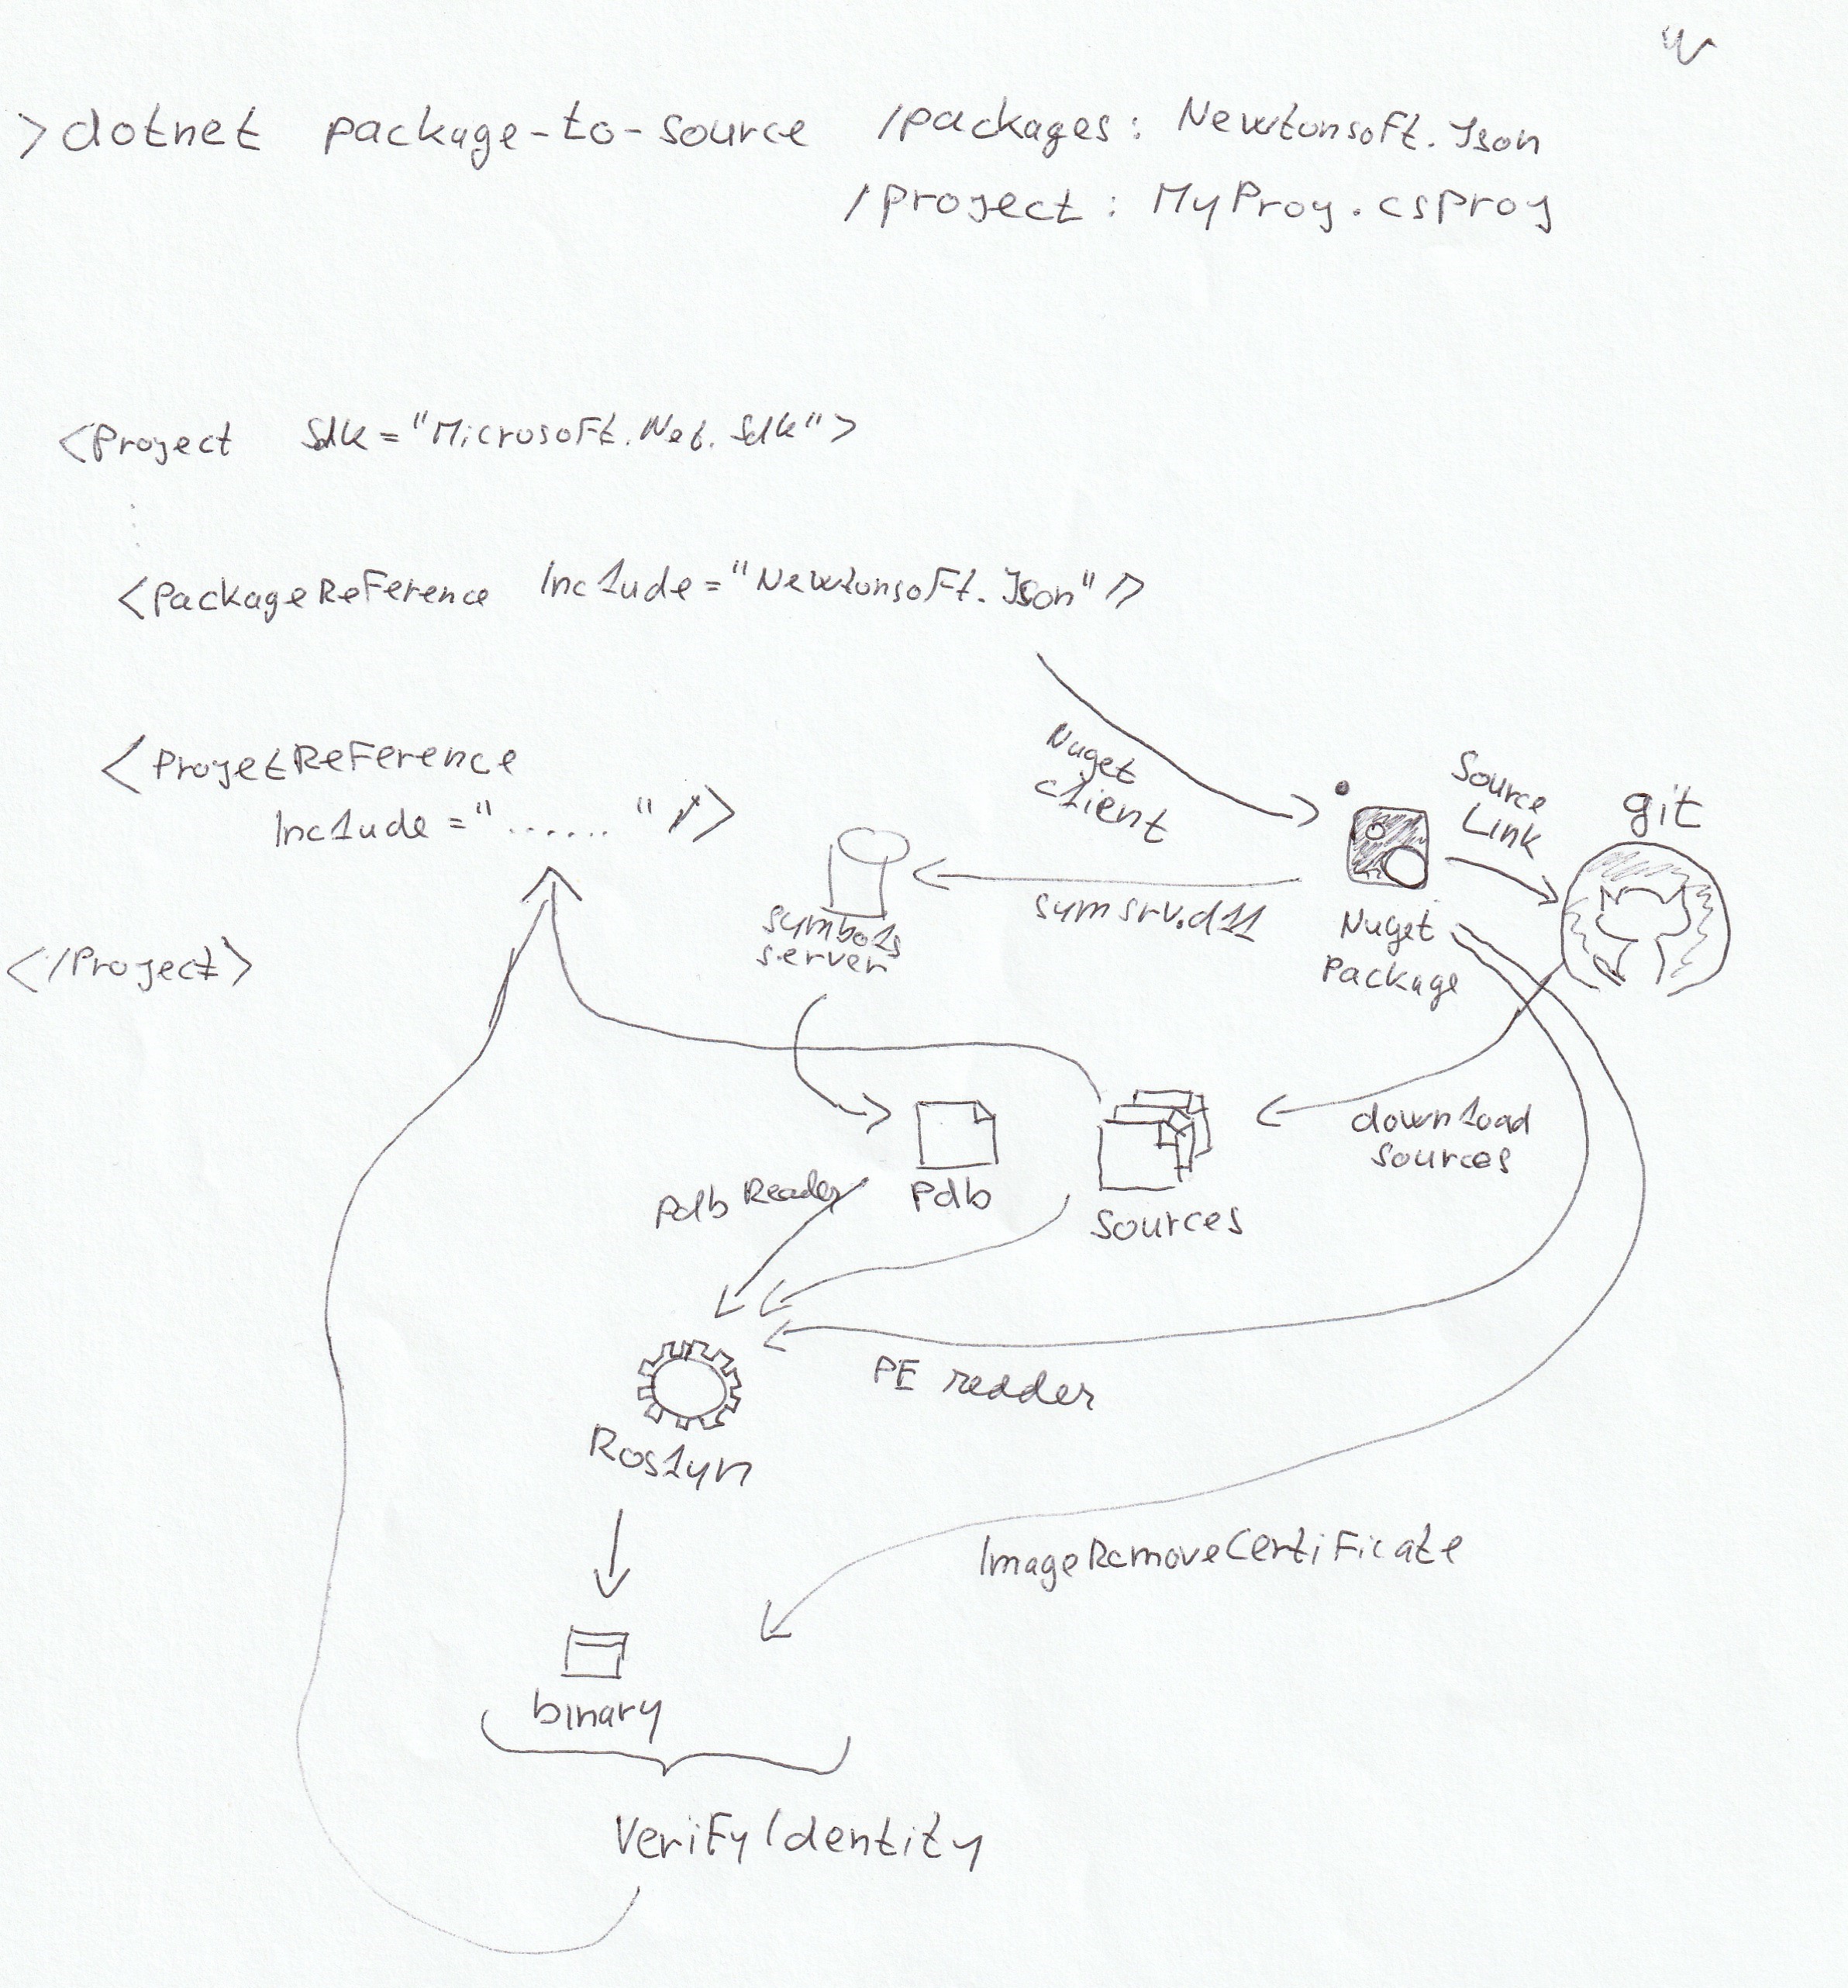 >dotnet package-to-source /packages: Newtonsoft.Json
/project: MyProj.csproj
<Project Sdk="Microsoft.Net.Sdk">
<PackageReference Include="Newtonsoft.Json"/>
<ProjetReference
Include="......"/>
</Project>
Nuget
client
Source
Link
git
symsrv.dll
symbols
server
Nuget
Package
download
sources
Pdb Reader
Pdb
Sources
PE reader
Roslyn
ImageRemoveCertificate
binary
VerifyIdentity